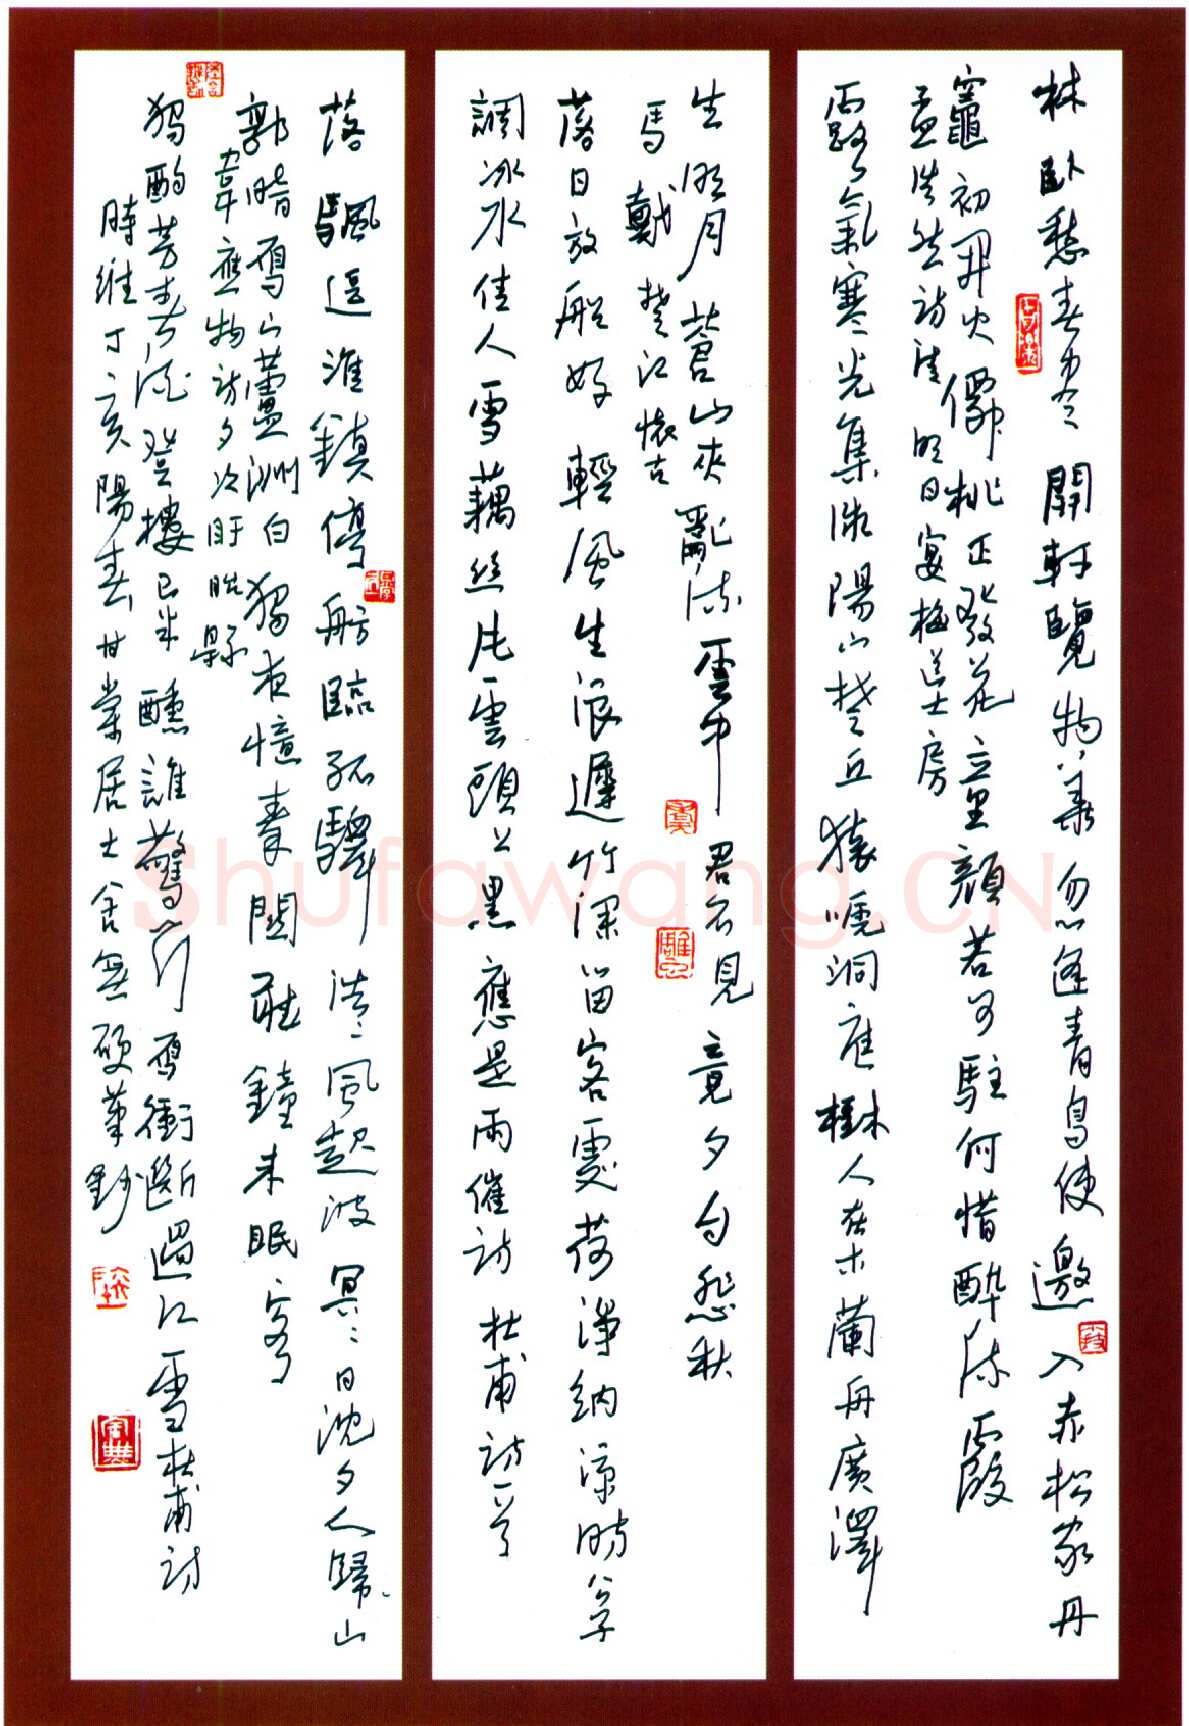 林臥愁春盡開軒覽物華忽逢青鳥使邀入赤松家丹
竈初開火僊桃正發花童顏若可駐何惜醉流霞
孟浩然詩清明日宴梅道士房
露氣寒光集微陽下楚丘猿啼洞庭樹人在木蘭舟廣澤
生明月蒼山夾亂流雲中君不見竟夕自悲秋
馬戴楚江懷古
落日放船好輕風生浪遲竹深留客處荷淨納涼時公子
調冰水佳人雪藕絲片雲頭上黑應是雨催詩杜甫詩一首
落帆逗淮鎮停舫臨孤驛浩浩風起波冥冥日沈夕人歸山
郭暗雁下蘆洲白獨夜憶秦關聽鐘未眠客
韋應物詩夕次盱眙縣
獨酌 登樓已半醺誰驚一行雁衝斷過江雲杜甫詩
時維丁亥陽春甘棠居士舍無硬筆鈔
Shufawang.CN